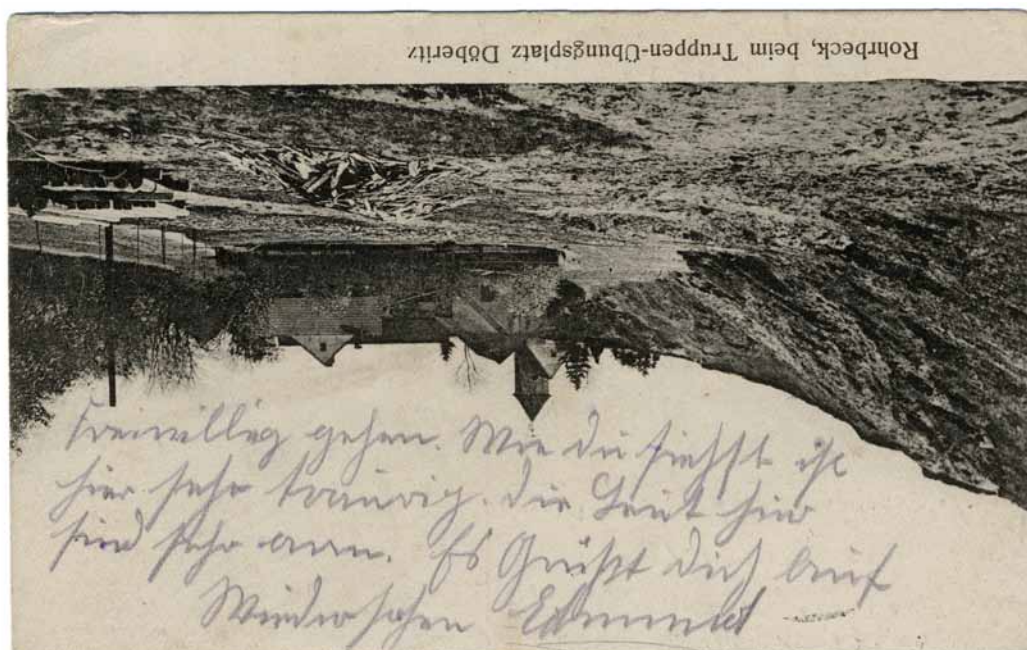 Rohrbeck, beim Truppen-Übungsplatz Döberitz
Freiwillig gehen. Wie du siehst ist
hier sehr traurig. die Leut hier
sind sehr arm. Es Grüßt dich Auf
Wiedersehen Edmund